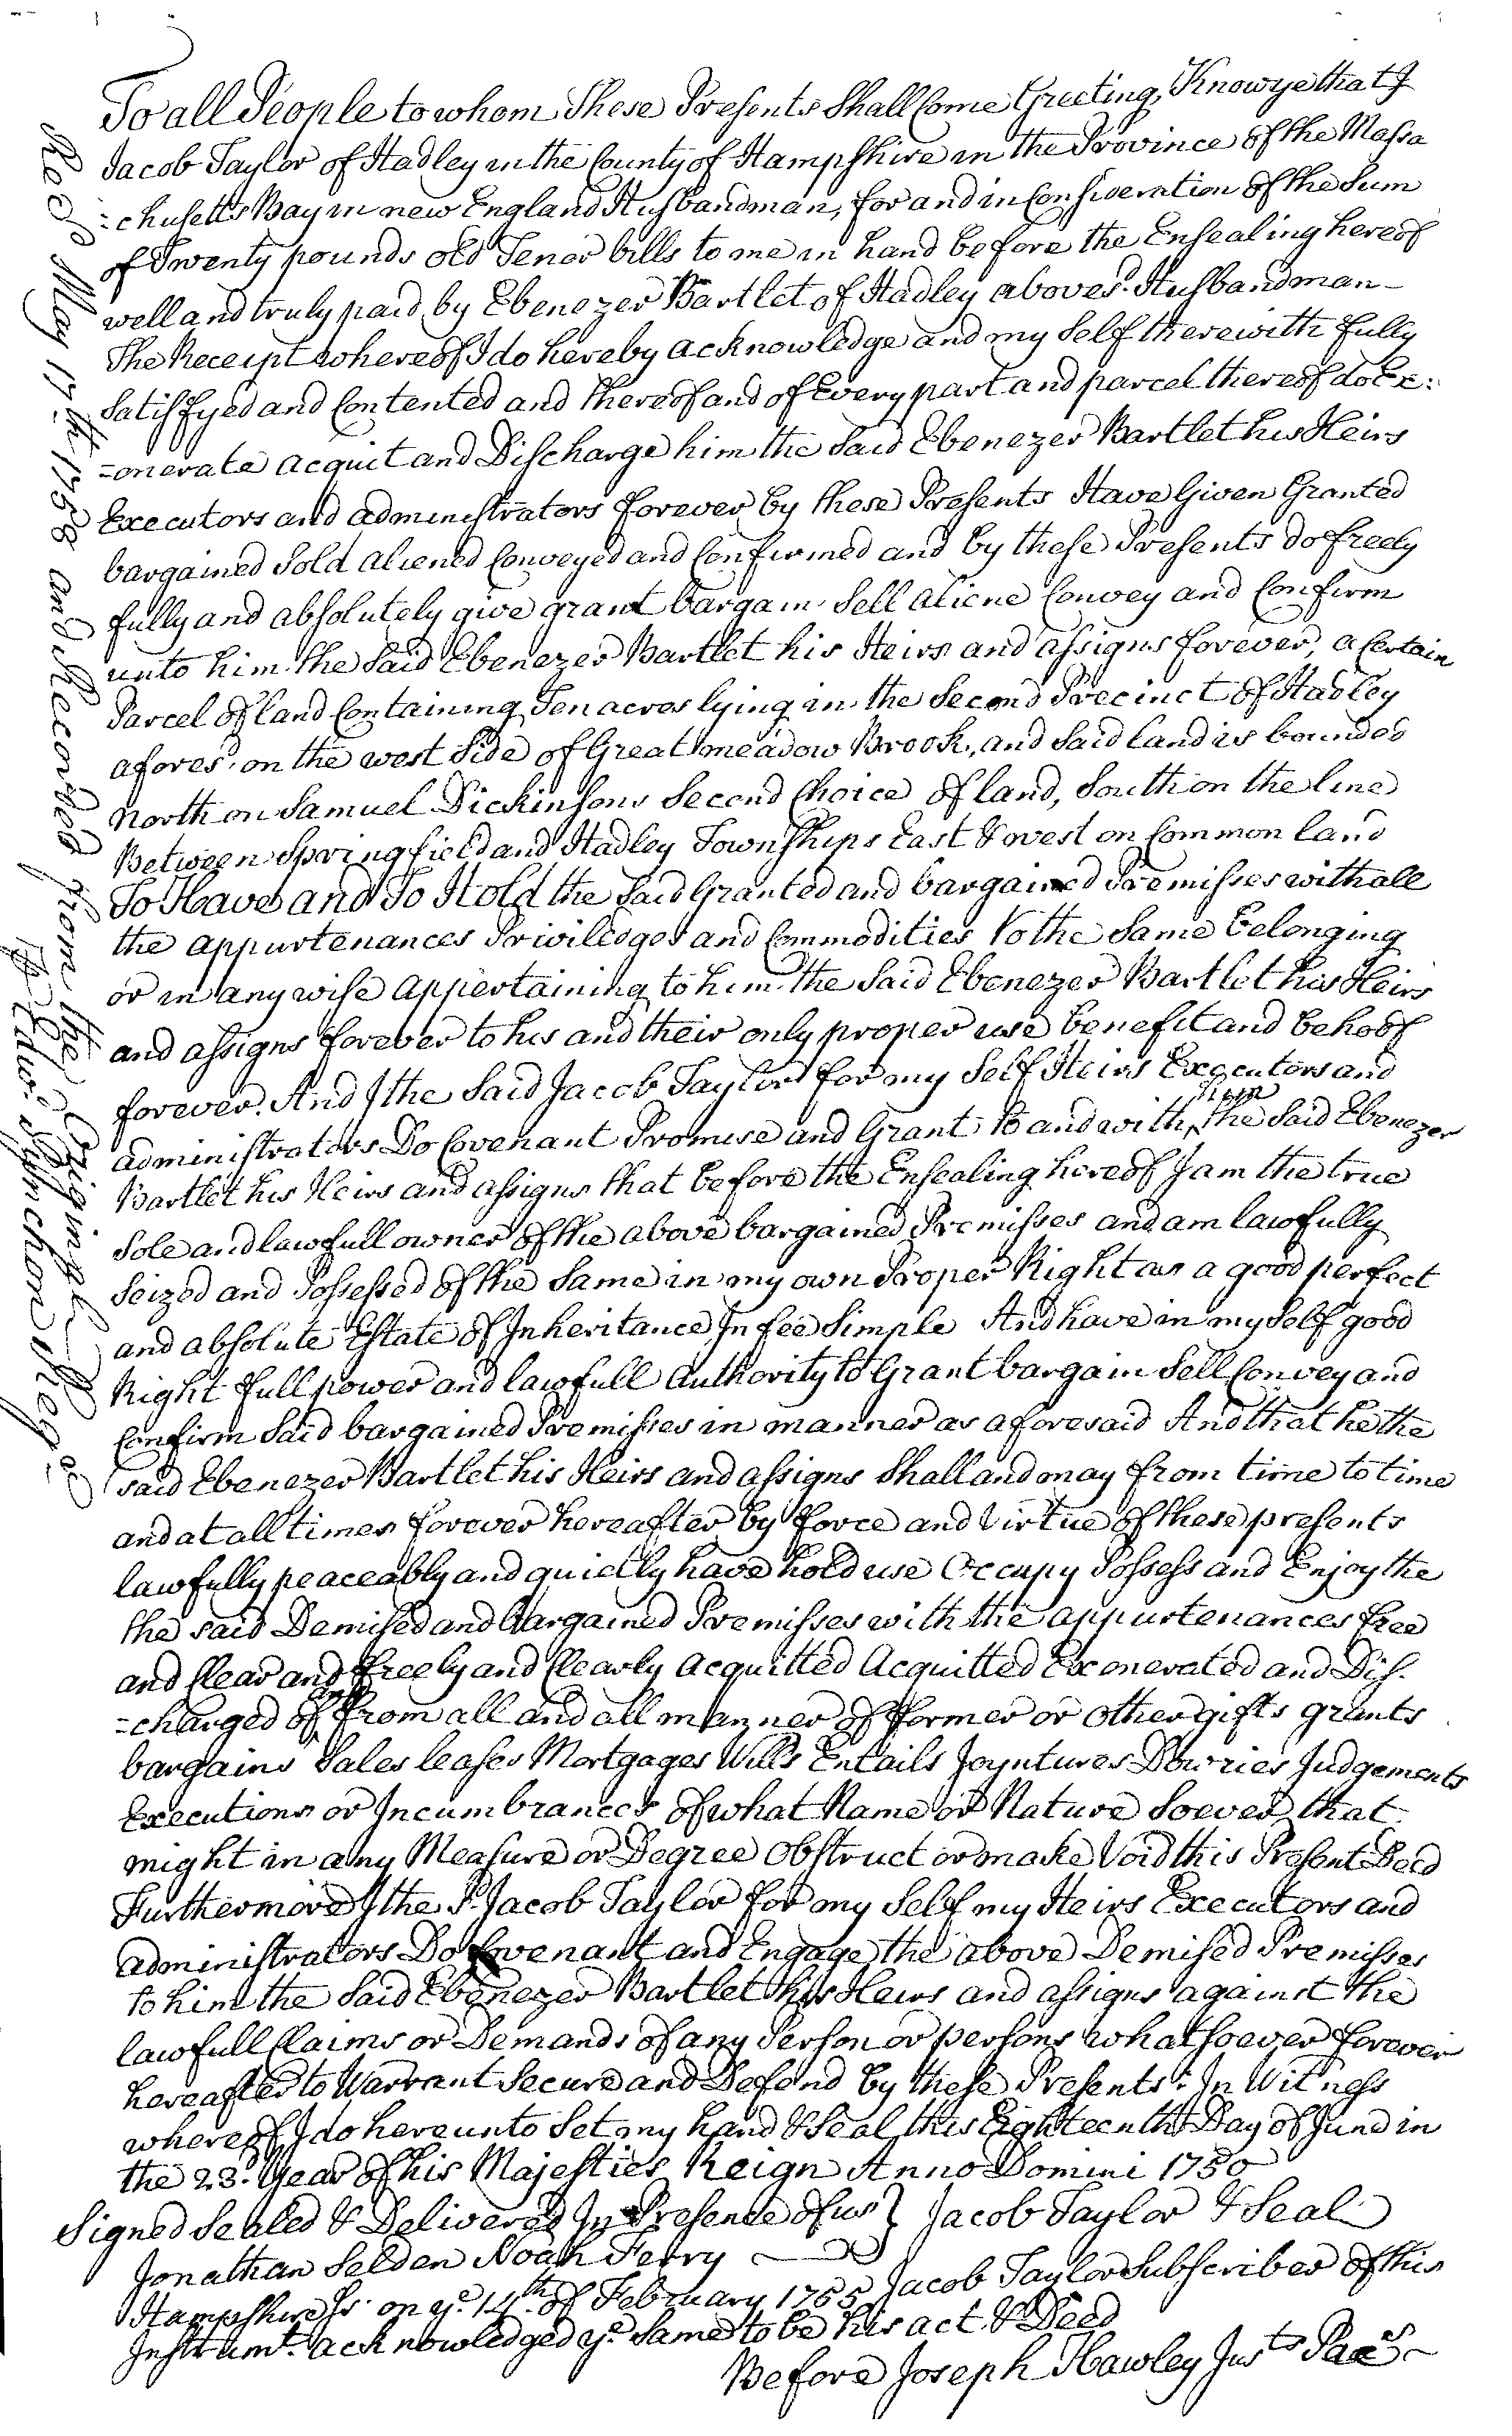 To all People to whom These Presents Shall Come Greeting, Know ye that I
Jacob Taylor of Hadley in the County of Hampshire in the Province of the Massa
=chusetts Bay in new England Husbandman, for and in Consideration of the Sum
of Twenty pounds old Tenor bills to me in hand before the Ensealing hereof
well and truly paid by Ebenezer Bartlet of Hadley aboves.d Husbandman -
The Receipt whereof I do hereby acknowledge and my Self therewith fully
Satisfyed and Contented and thereof and of Every part and parcel thereof do Ex:
=onerate acquit and Discharge him the Said Ebenezer Bartlet his Heirs
Executors and administrators forever by these Presents Have Given Granted
bargained Sold aliened Conveyed and Confirmed and by these Presents do freely
fully and absolutely give grant bargain Sell aliene Convey and Confirm
unto him the Said Ebenezer Bartlet his Heirs and assigns forever, a Certain
Parcel of land Containing Ten acres lying in the Second Precinct of Hadley
afores.d on the west Side of Great meadow Brook, and Said land is bounded
North on Samuel Dickinsons Second Choice of land, South on the line
Between Springfield and Hadley Townships East & west on Common land
To Have and To Hold the Said Granted and bargained Premisses with all
the appurtenances Priviledges and Commodities to the Same belonging
or in any wise appertaining to him the Said Ebenezer Bartlet his Heirs
and assigns forever to his and their only proper use benefit and behoof
forever. And I the Said Jacob Taylor for my Self Heirs Executors and
administrators Do Covenant Promise and Grant to and with him the Said Ebenezer
Bartlet his Heirs and assigns that before the Ensealing hereof I am the true
Sole and lawfull owner of the above bargained Premisses and am lawfully
Seized and Possessed of the Same in my own Proper Right as a good perfect
and absolute Estate of Inheritance In fee Simple And have in my Self good
Right full power and lawfull Authority to Grant bargain Sell Convey and
Confirm Said bargained Premisses in manner as aforesaid And that he the
said Ebenezer Bartlet his Heirs and assigns Shall and may from time to time
and at all times forever hereafter by force and Virtue of these presents
lawfully peaceably and quietly have hold use Occupy Possess and Enjoy the
the said Demised and bargained Premisses with the appurtenances free
and Clear and freely and Clearly acquitted Acquitted Exonerated and Dis-
=charged of and from all and all manner of former or other gifts grants
bargains Sales leases Mortgages Wills Entails Joyntures Dowries Judgements
Executions or Incumbrances of what Name or Nature Soever that
might in any Measure or Degree obstruct or make Void this Present Deed
Furthermore I the S.d Jacob Taylor for my Self my Heirs Executors and
administrators Do Covenant and Engage the above Demised Premisses
to him the Said Ebenezer Bartlet his Heirs and assigns against the
lawfull Claims or Demands of any Person or persons whatsoever forever
hereafter to Warrant Secure and Defend by these Presents: In Witness
whereof I do hereunto Set my hand & Seal this Eighteenth Day of June in
the 23.d Year of his Majesties Reign Anno Domini 1750
Signed Sealed & Delivered In Presence of us } Jacob Taylor & Seal
Jonathan Selden Noah Ferry
Hampshire Ss. on y.e 14.th of February 1755 Jacob Taylor Subscriber of this
Instrum.t acknowledged y.e Same to be his act & Deed
Before Joseph Hawley Jus.ts Paces
Rec.d May 17.th 1758 and Recorded from the Original
P Edw.d Pynchon Reg.r